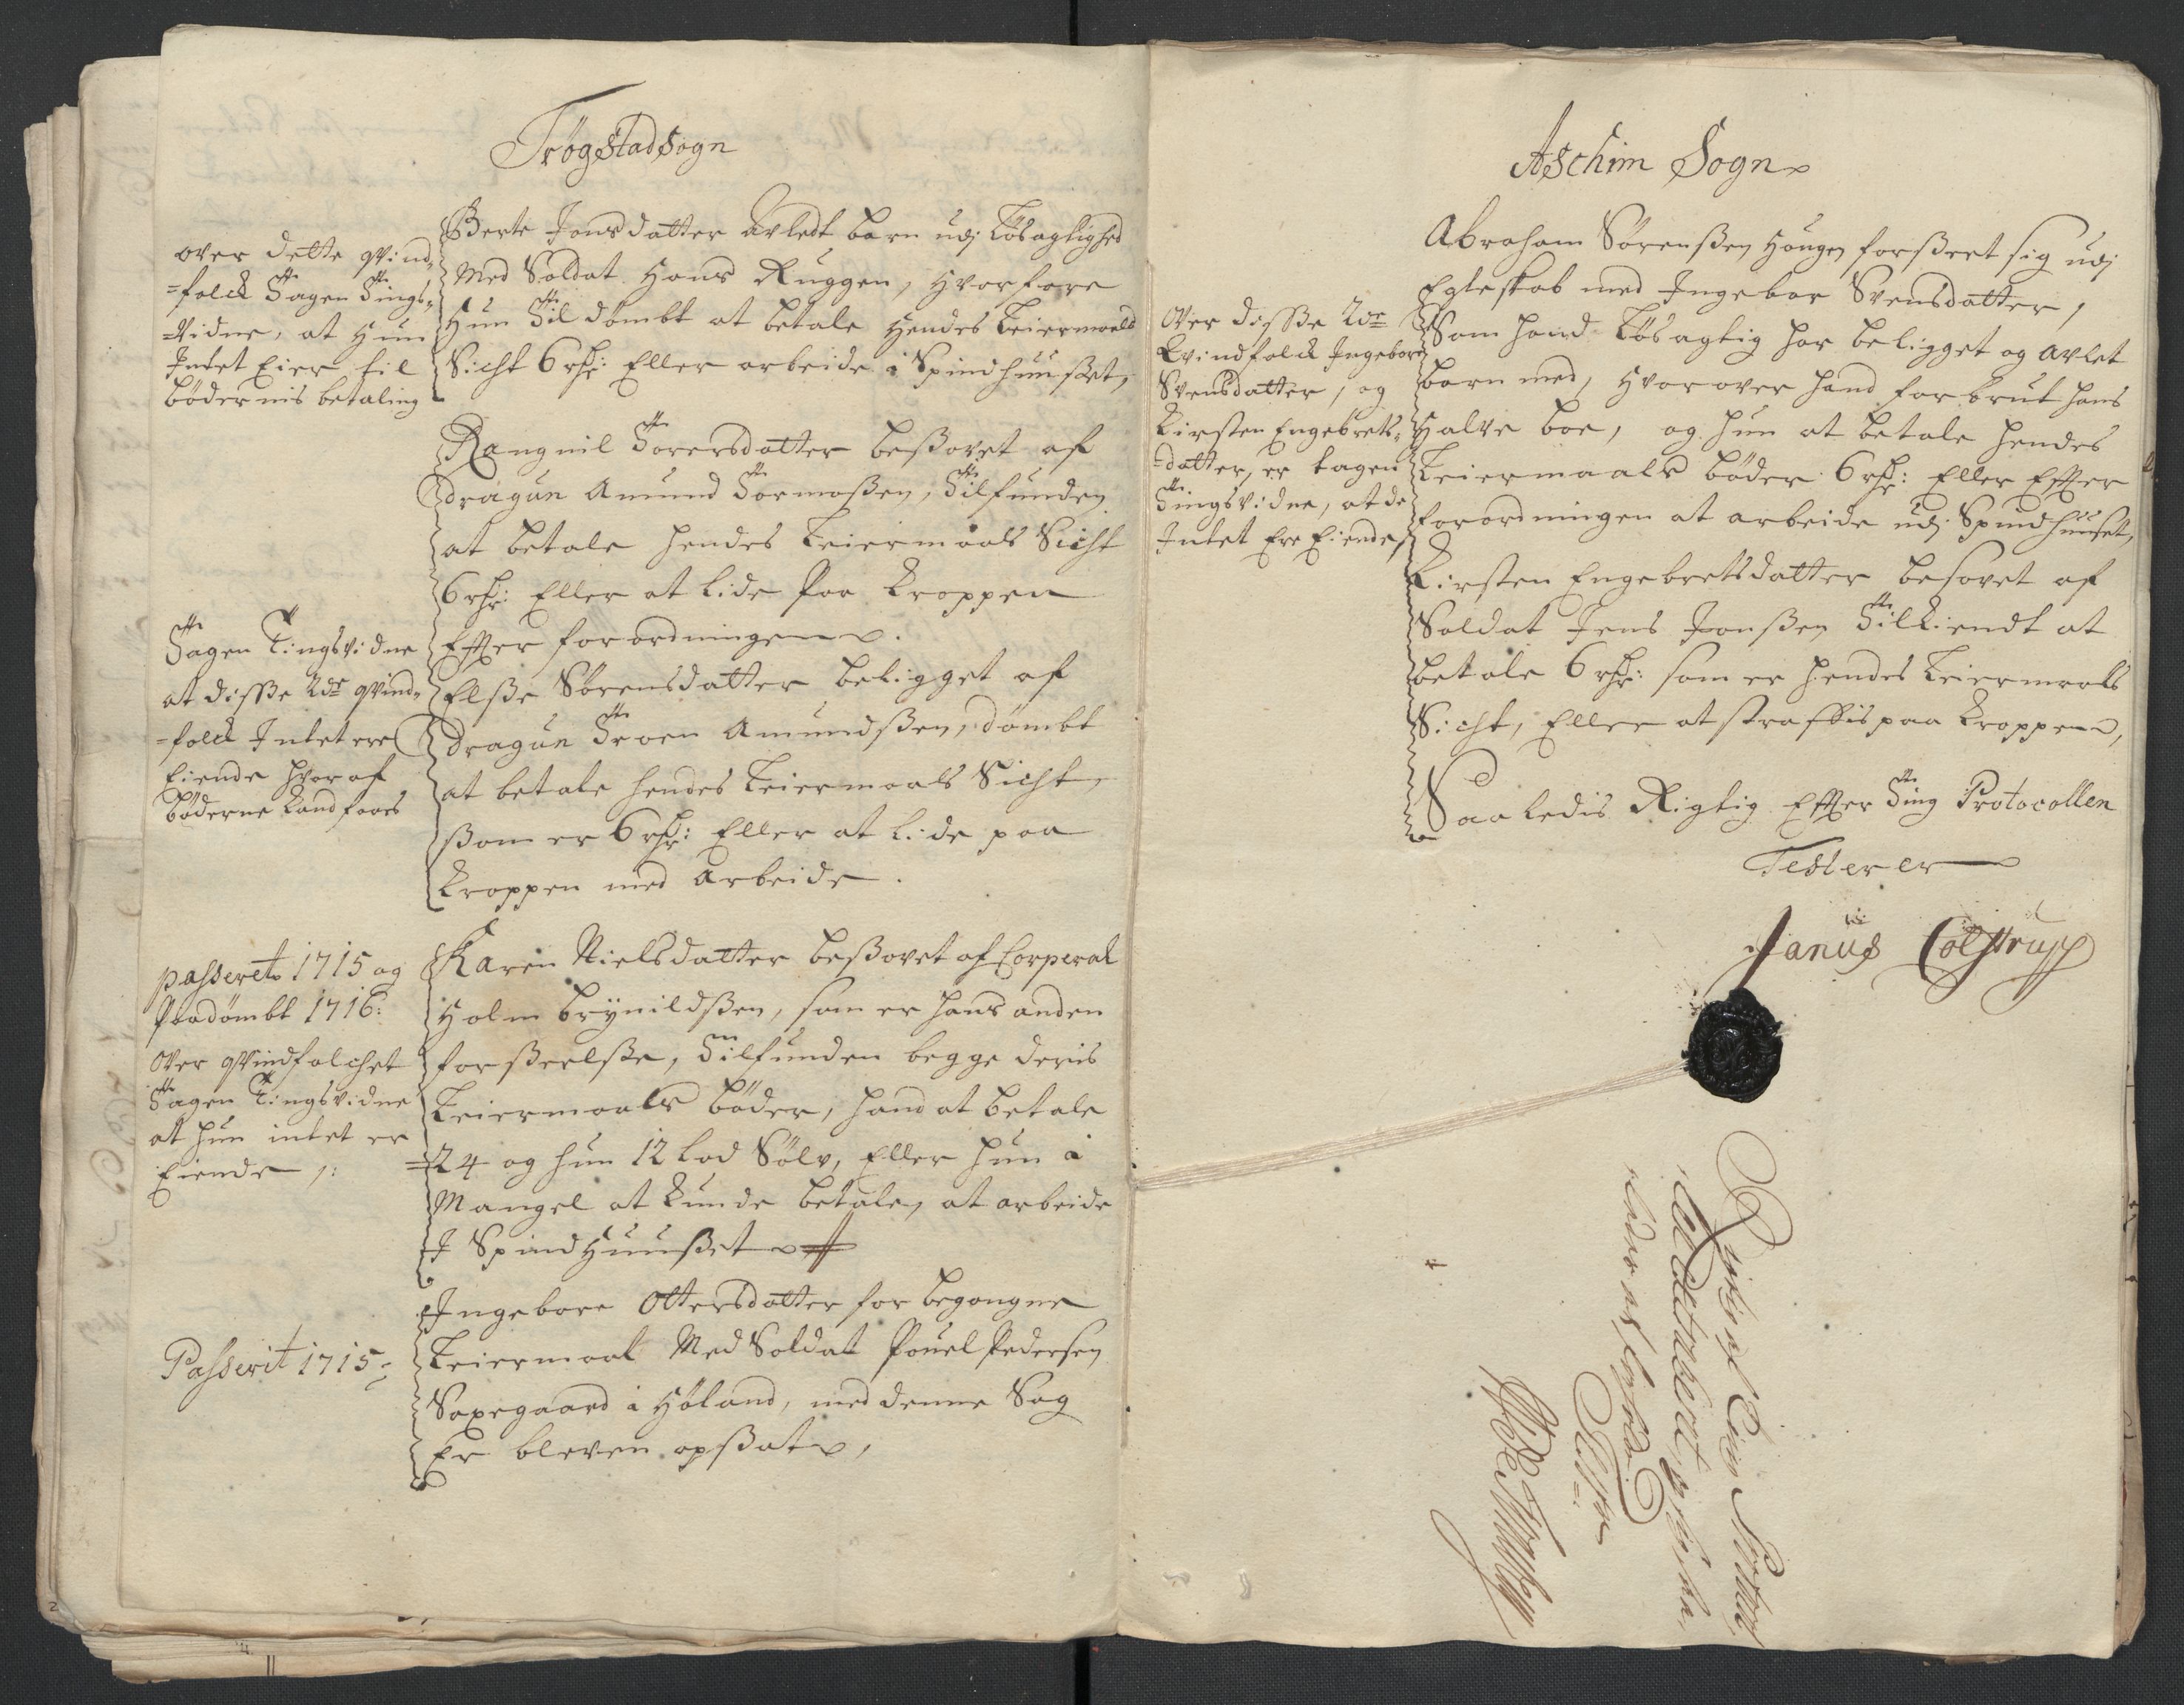 Trøgstad Sogn
over dette qvind-
=folck Tagen Tings-
=Vidne, at Hun
Intet Eier til
bødernis betaling
Berte Jonsdatter Avledt barn udj Løsagtighed
Med Soldat Hans Ruggen, Hvorfore
Hun Til dømbt at betale Hendes Leiermaals
Sicht 6 rdr: Eller arbeide i Spindhuusset,
Rangnil Torersdatter beßovet af
dragun Amund Tormoßen, Tilfunden
at betale hendes Leiermaals Sicht
6 rdr: Eller at lide Paa Kroppen
Efter forordningen.
Tagen Tingsvidne
at disße 2de qvind-
=folck Intet ere
Eiende hvoraf
bøderne Kand faaes
Elße Sørensdatter beligget af
dragun Troen Amundßen, dømbt
at betale hendes Leiermaals Sicht,
ßom er 6 rdr: Eller at lide paa
Kroppen med Arbeide.
passeret 1715 og
Paadømbt 1716:
Over qvindfolchet
Tagen Tingsvidne
at hun intet er
Eiende /:
Karen Nielsdatter beßovet af Corperal
Holm Brynildßen, som er hans anden
forßeelße, Tilfunden begge deris
Leiermaals bøder, hand at betale
=24 og hun 12 Lod Sølv, Eller hun i
Mangel at kunde betale, at arbeide
I SpindHuußet
Passerit 1715:
Ingebore Ottersdatter for begangne
Leiermaal Med Soldat Pouel Pedersen
Saxegaard i Høland, med denne Sag
Er bleven opßat,
Aschim Sogn
Over disße 2de
Kvindfolck Ingebore
Svensdatter, og
Kirsten Engebrets-
=datter, er tagen
Tingsvidne, at de
Intet Ere Eiende,
Abraham Sørenßen Hougen forßeet sig udj
Egteskab med Ingebor Svensdatter,
Som hand Løsagtig har beligget og Avlet
barn med, Hvorover hand forbrut hans
Halve boe, og hun at betale hendes
Leiermaals bøder 6 rdr: Eller Efter
forordningen at arbeide udj Spindhuuset,
Kirsten Engebretsdatter besovet af
Soldat Jens Jonßen Tilkiendt at
betale 6 rdr: som er hendes Leiermaals
Sicht, Eller at straffis paa Kroppen,
Saaledis Rigtig Efter Ting Protocollen
Testerer
Janus Colstrup